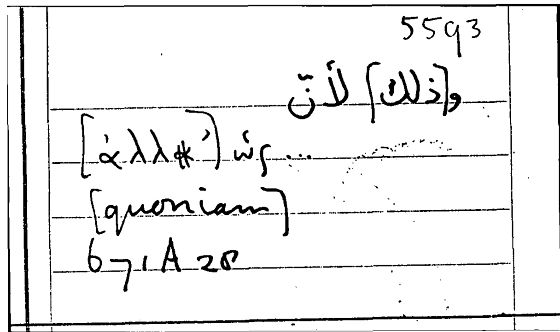 5593
و[ذلك] لأنّ
[ἀλλ*'] ὡς ...
[quoniam]
671A28